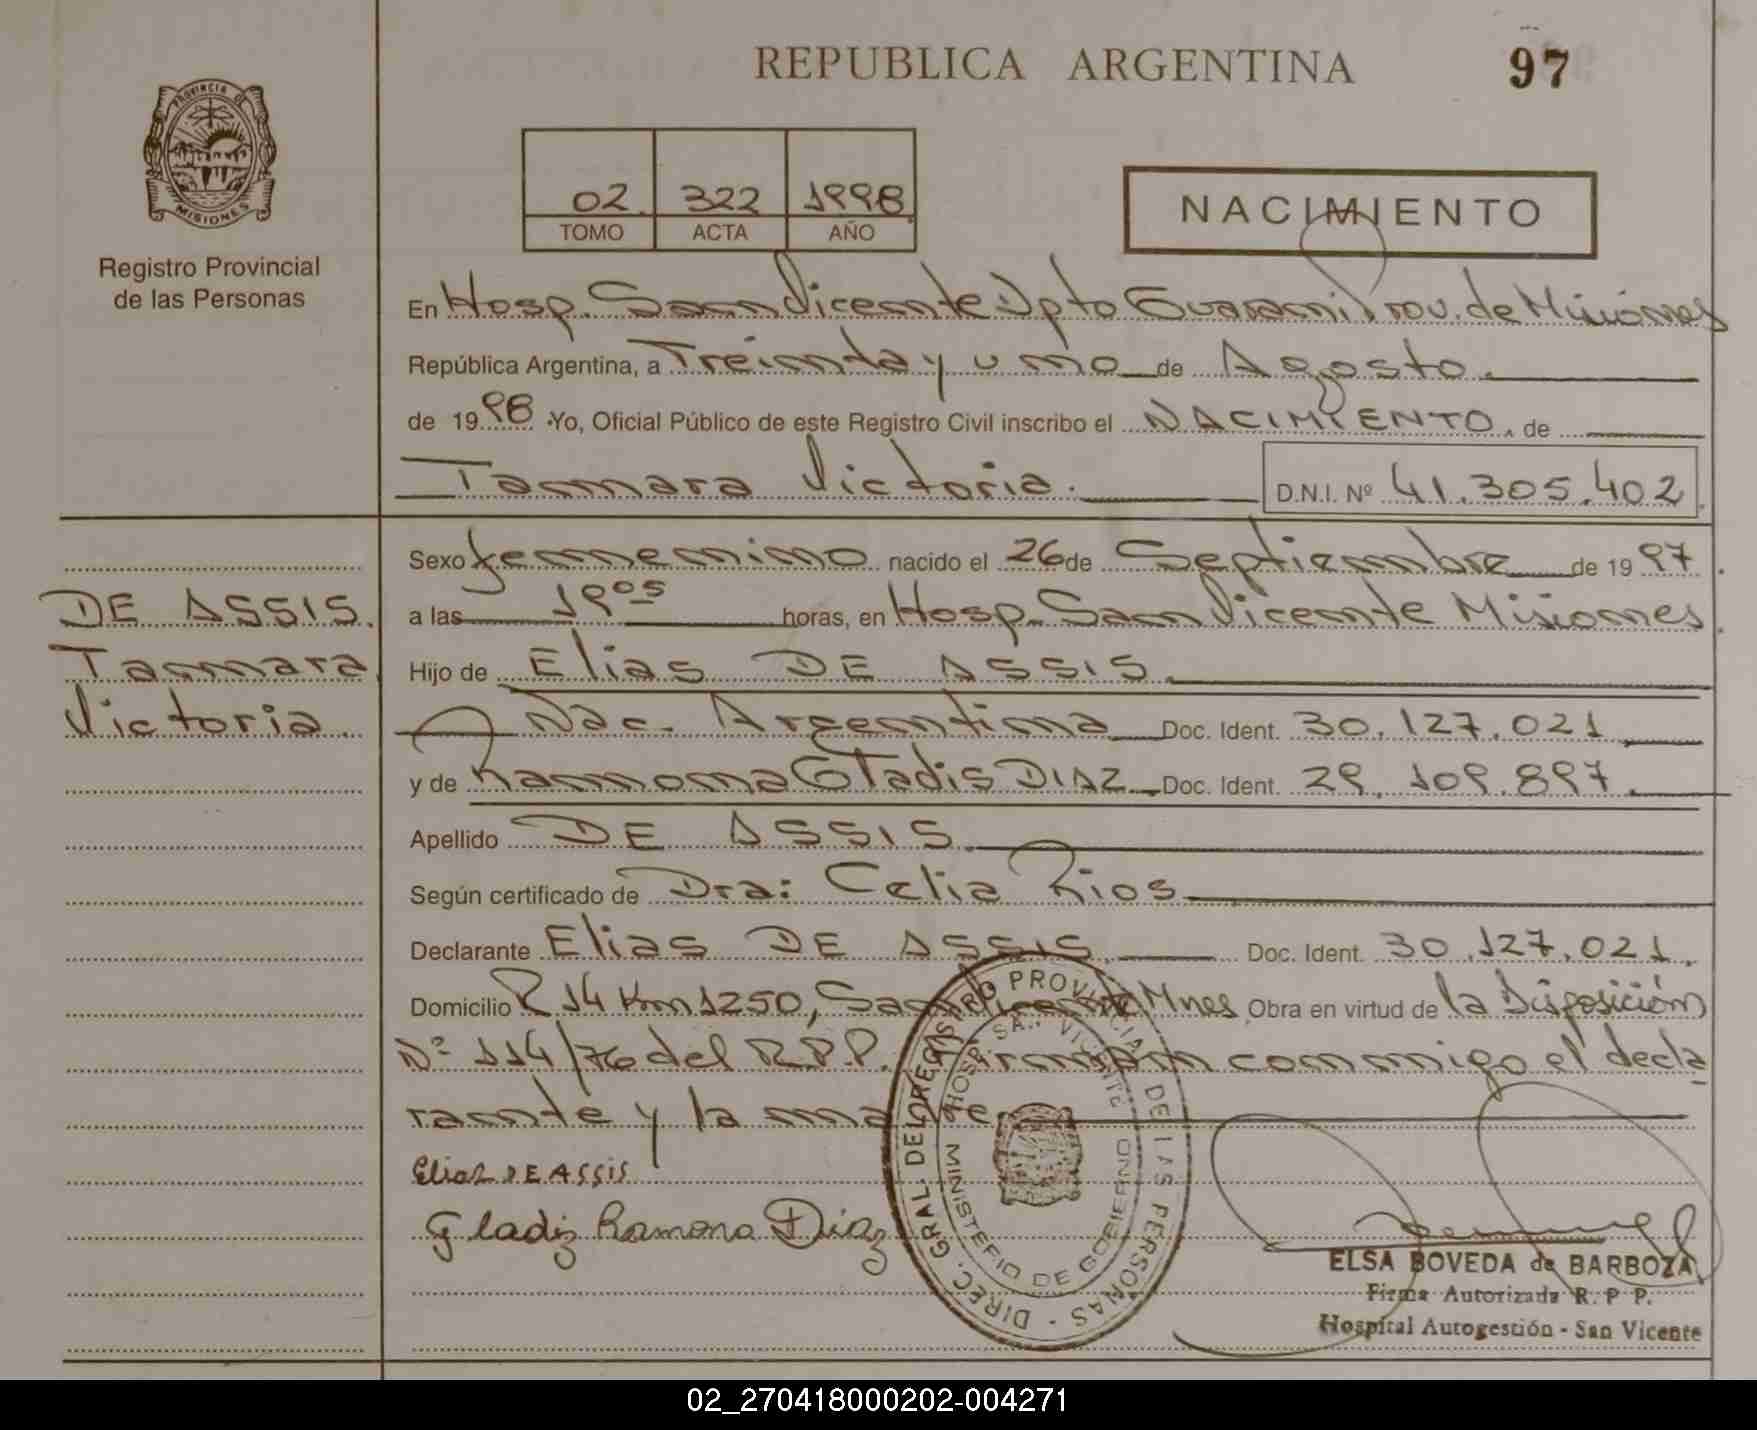 REPUBLICA ARGENTINA
97
PROVINCIA DE
MISIONES
Registro Provincial
de las Personas
02 322 1998
TOMO ACTA AÑO
NACIMIENTO
En Hosp. San Vicente Dpto Guarani Prov. de Misiones
República Argentina, a Treinta y uno de Agosto.
de 1998 Yo, Oficial Público de este Registro Civil inscribo el NACIMIENTO, de
Tamara Victoria. D.N.I. Nº 41.305.402
Sexo femenino nacido el 26 de Septiembre de 1997
a las 19 05 horas, en Hosp. San Vicente Misiones
Hijo de Elias DE ASSIS
Nac. Argentina Doc. Ident. 30.127.021
y de Ramona Gladis DIAZ Doc. Ident. 29.109.897.
Apellido DE ASSIS
Según certificado de Dra: Celia Rios
Declarante Elias DE ASSIS Doc. Ident. 30.127.021.
Domicilio R 14 Km 1250, San Vicente Mnes Obra en virtud de la Disposición
Nº 114/76 del R.P.P. Firman conmigo el decla
rante y la madre
DE ASSIS
Tamara
Victoria
Elias DE ASSIS
Gladiz Ramona Diaz
DIREC. GRAL. DEL REGISTRO PROVINCIAL DE LAS PERSONAS
MINISTERIO DE GOBIERNO
HOSP. SAN VICENTE
ELSA BOVEDA de BARBOZA
Firma Autorizada R. P P.
Hospital Autogestión - San Vicente
02_270418000202-004271